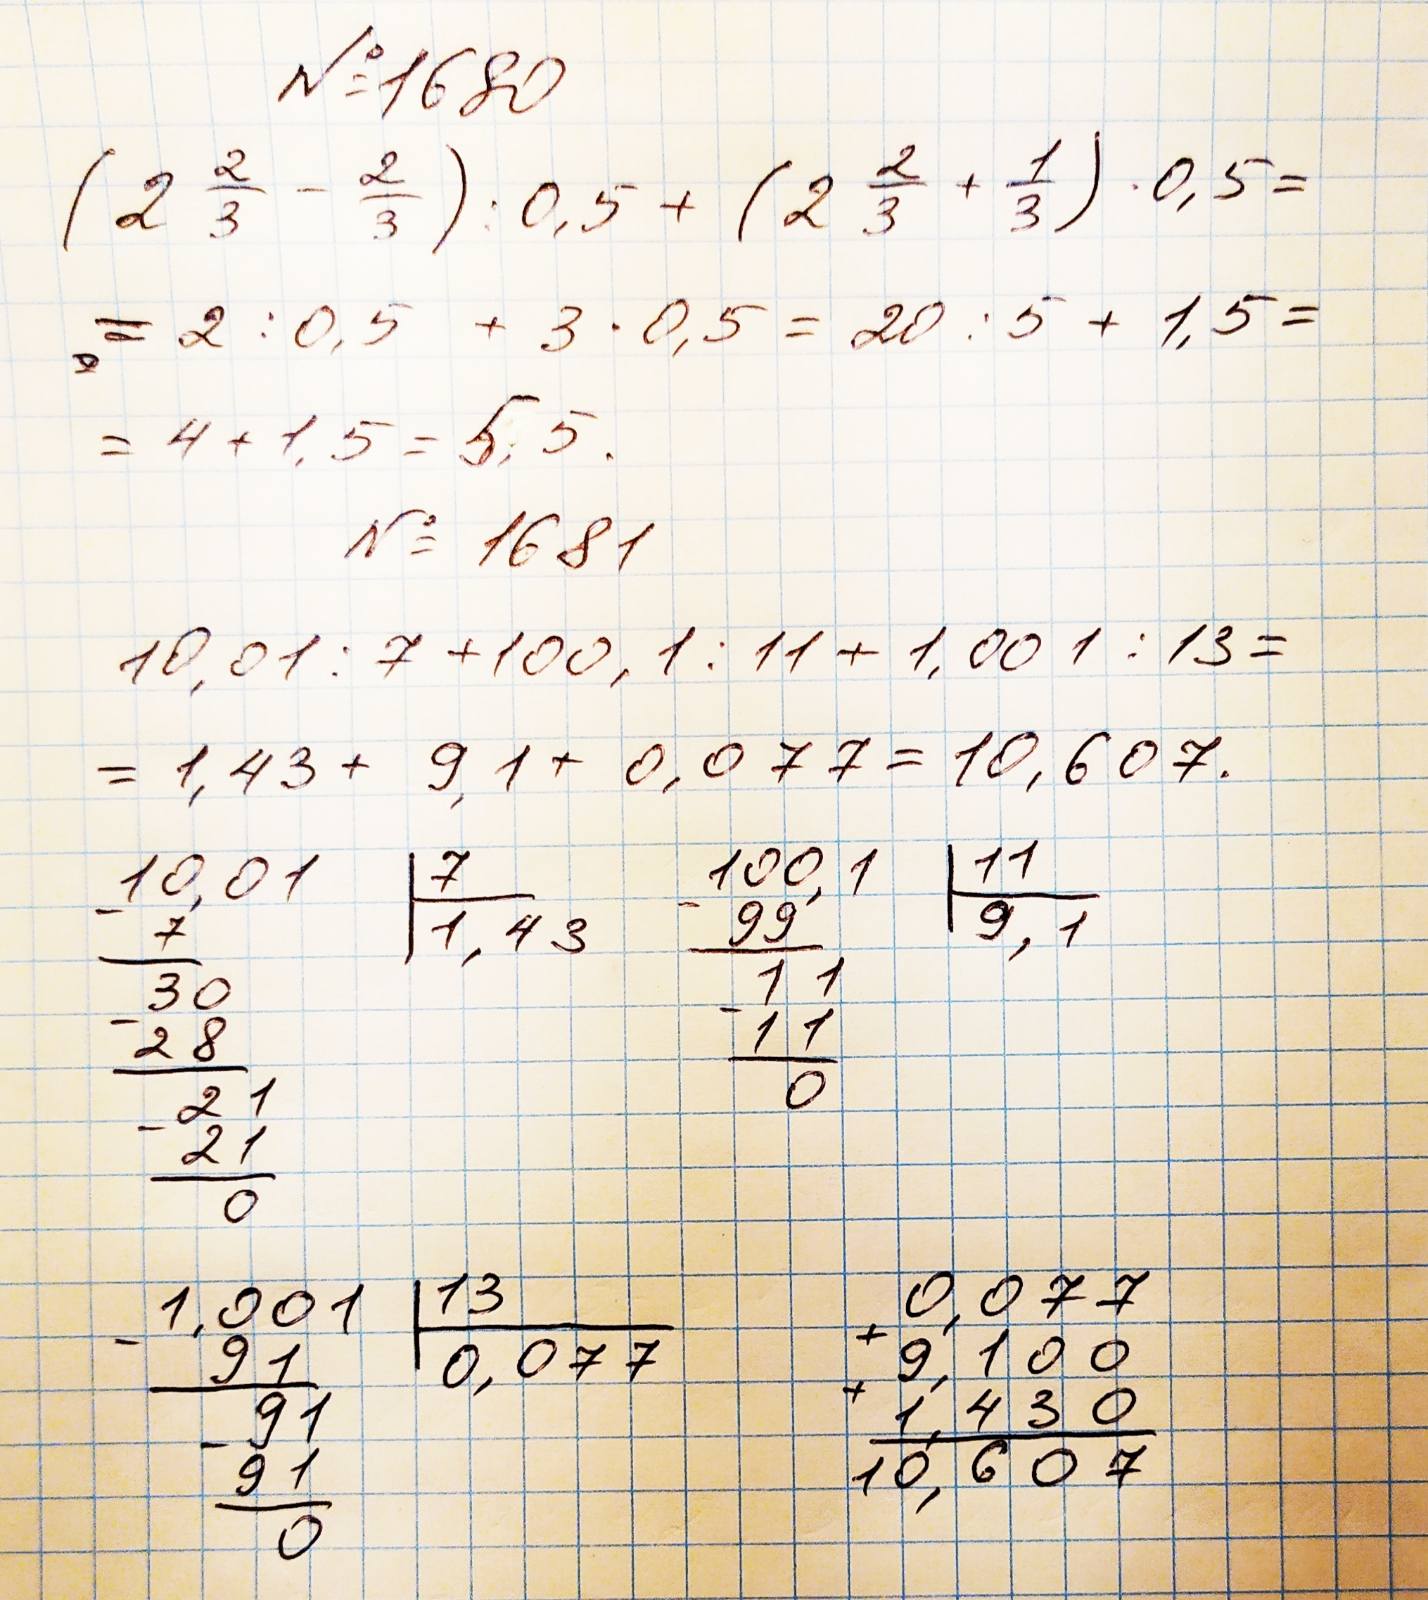 №1680
(2 2/3 - 2/3) : 0,5 + (2 2/3 + 1/3) · 0,5 =
= 2 : 0,5 + 3 · 0,5 = 20 : 5 + 1,5 =
= 4 + 1,5 = 5,5.
№ 1681
10,01 : 7 + 100,1 : 11 + 1,001 : 13 =
= 1,43 + 9,1 + 0,077 = 10,607.
10,01 | 7
- 7 | 1,43
30
- 28
21
- 21
0
100,1 | 11
- 99 | 9,1
11
- 11
0
1,001 | 13
- 91 | 0,077
91
- 91
0
0,077
+ 9,100
+ 1,430
10,607